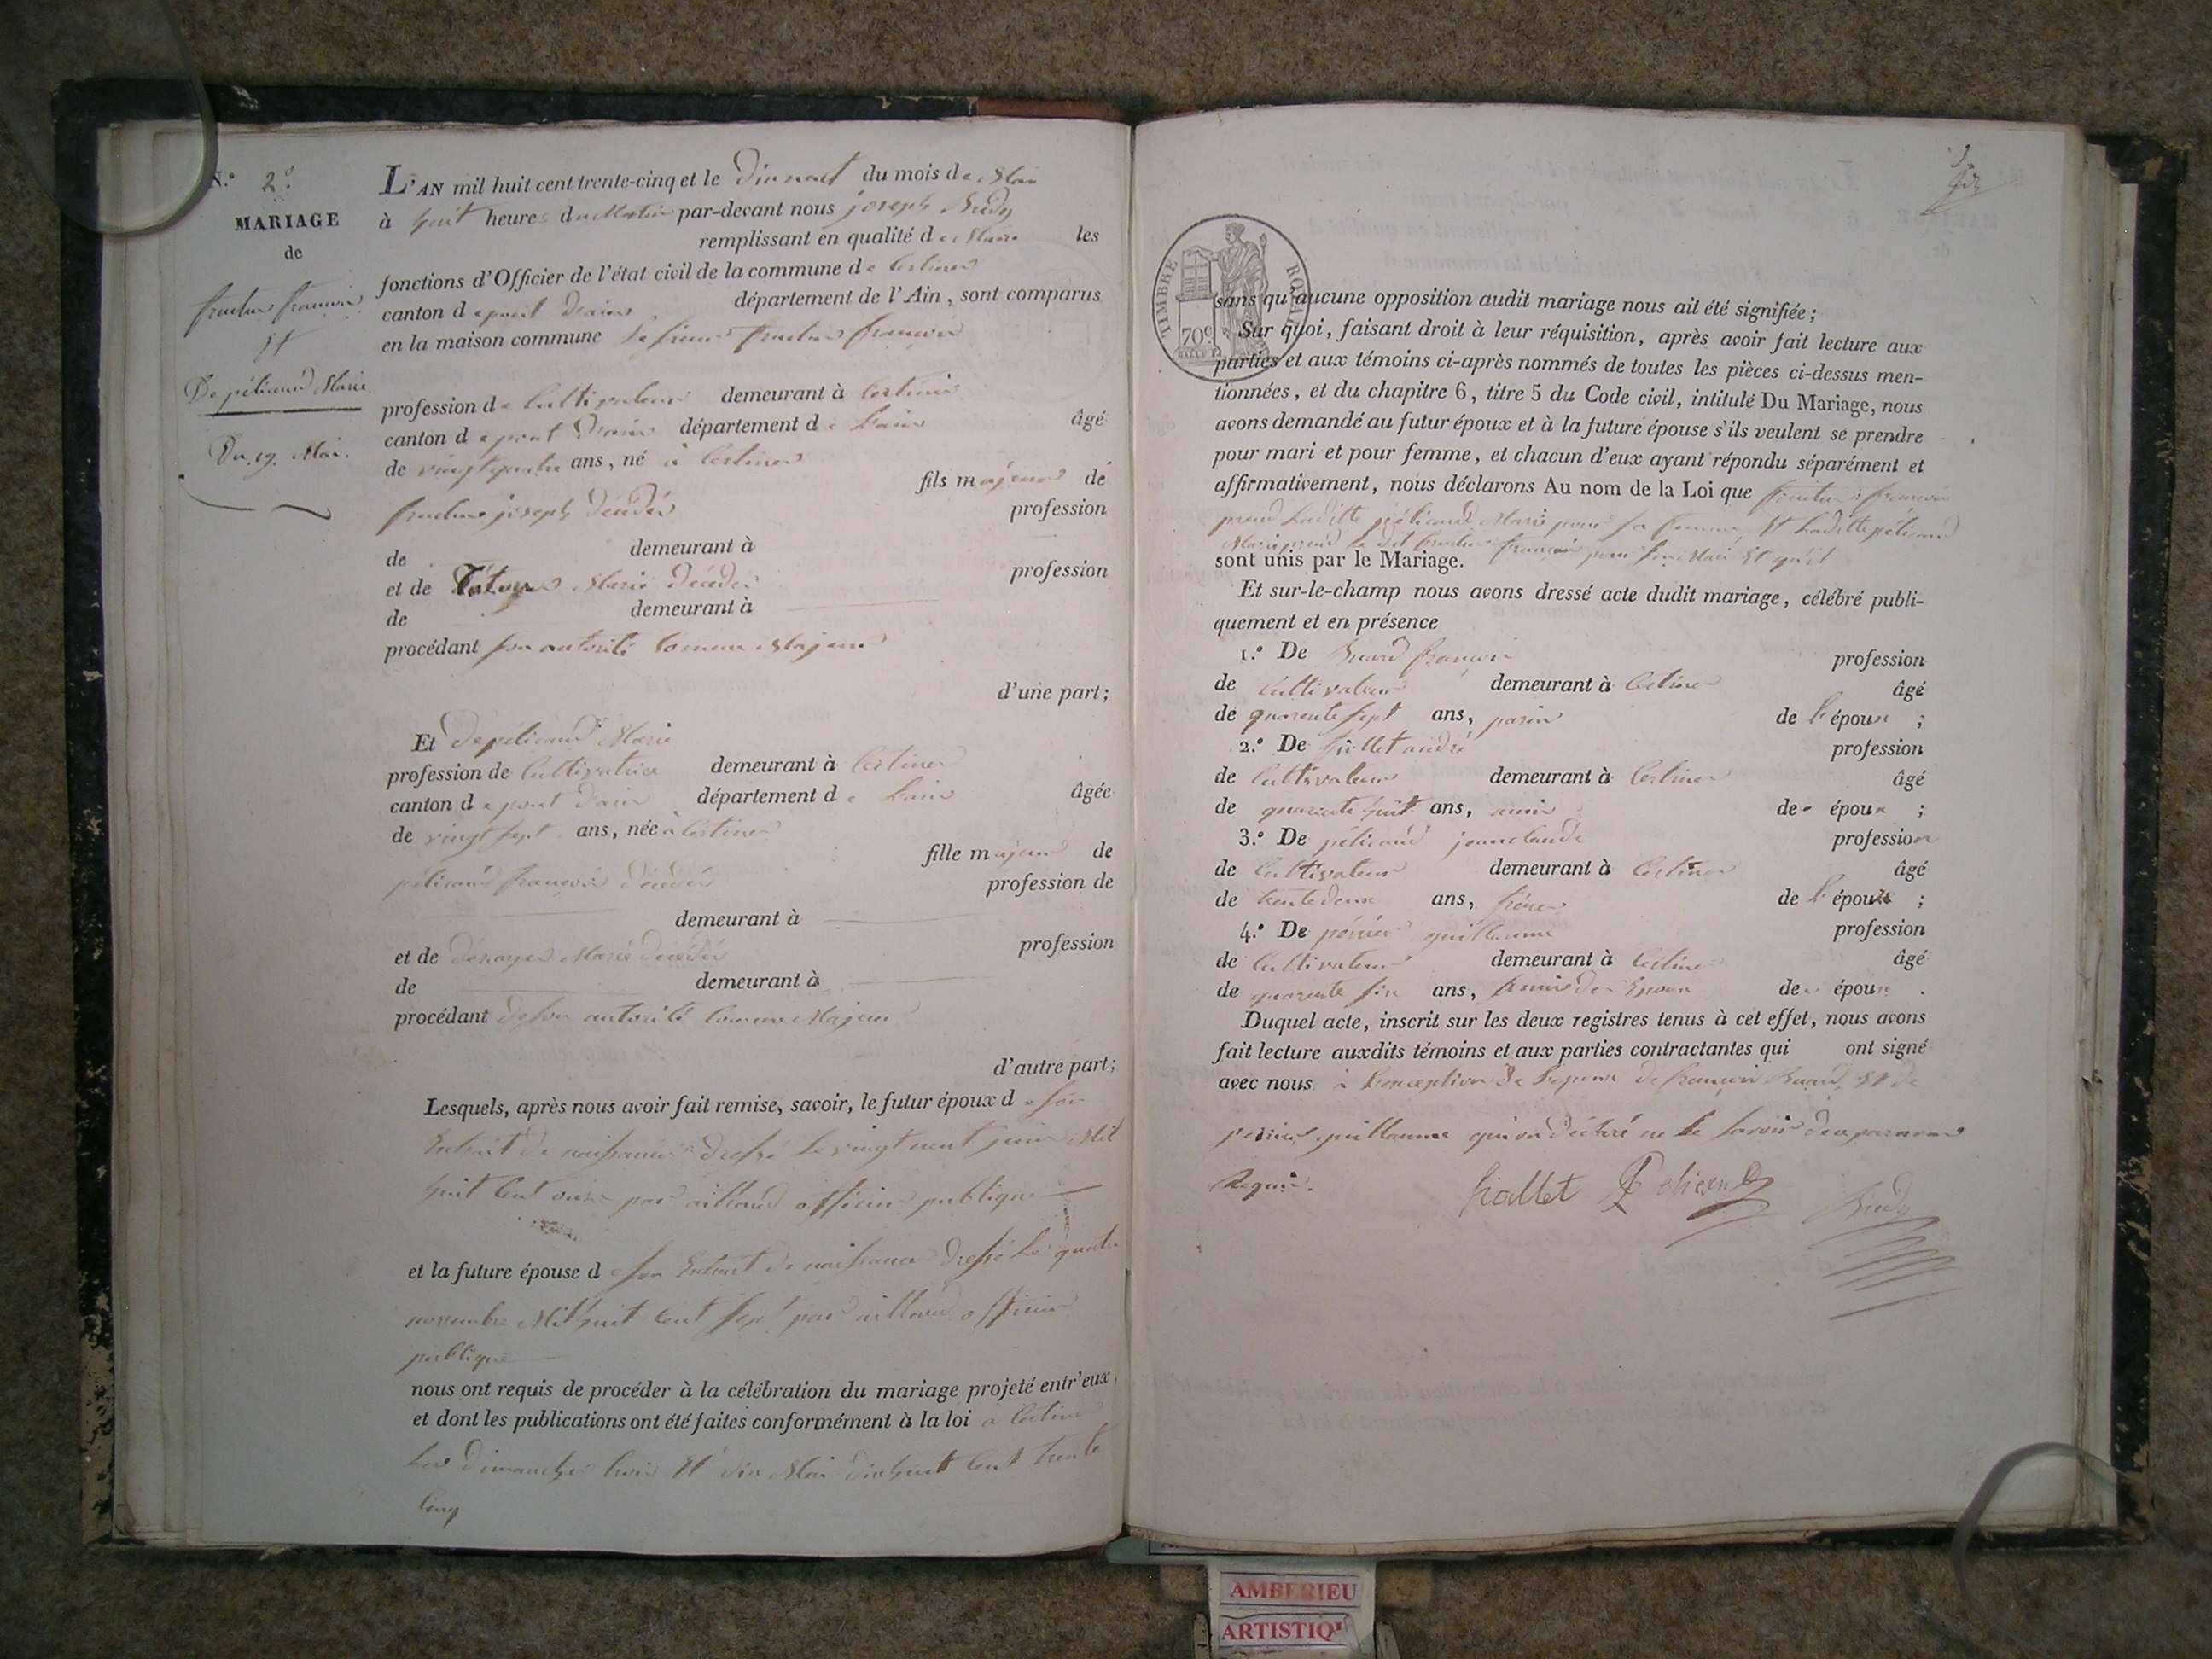 N.º 2º
MARIAGE
de
fructus françois
Et
De pélicand Marie
Du 19 Mai.
L'AN mil huit cent trente-cinq et le dix neuf du mois de Mai
à huit heures du Matin par-devant nous joseph
remplissant en qualité de Maire les
fonctions d'Officier de l'état civil de la commune de Certines
canton de pont d'ain département de l'Ain, sont comparus
en la maison commune françois
profession de Cultivateur demeurant à Certines
canton de pont d'ain département de l'ain âgé
de vingt quatre ans, né à Certines
fils majeur de
joseph décédé profession
de demeurant à
et de Marie décédée profession
de demeurant à
procédant son autorité comme Majeur
d'une part;
Et de pelicand Marie
profession de Cultivatrice demeurant à Certines
canton de pont d'ain département de l'ain âgée
de vingt sept ans, née à Certines
fille majeure de
pélicand françois décédé profession de
demeurant à
et de Marie décédée profession
de demeurant à
procédant de son autorité comme Majeur
d'autre part;
Lesquels, après nous avoir fait remise, savoir, le futur époux de son
Extrait de naissance dressé le vingt neuf juin Mil
huit Cent onze par aillaud officier publique
et la future épouse de son Extrait de naissance dressé le quatre
novembre Mil huit cent sept par aillaud officier
publique
nous ont requis de procéder à la célébration du mariage projeté entr'eux
et dont les publications ont été faites conformément à la loi a Certines
Les dimanches trois Et dix Mai dix huit Cent trente
Cinq
TIMBRE ROYAL
70c
sans qu'aucune opposition audit mariage nous ait été signifiée;
Sur quoi, faisant droit à leur réquisition, après avoir fait lecture aux
parties et aux témoins ci-après nommés de toutes les pièces ci-dessus men-
tionnées, et du chapitre 6, titre 5 du Code civil, intitulé Du Mariage, nous
avons demandé au futur époux et à la future épouse s'ils veulent se prendre
pour mari et pour femme, et chacun d'eux ayant répondu séparément et
affirmativement, nous déclarons Au nom de la Loi que françois
prend Laditte pélicand Marie pour sa femme, Et Laditte pélicand
Marie prend Le dit françois pour son Mari Et qu'il
sont unis par le Mariage.
Et sur-le-champ nous avons dressé acte dudit mariage, célébré publi-
quement et en présence
1.º De françois profession
de Cultivateur demeurant à Certines âgé
de quarente sept ans, de l'épouse;
2.º De fiollet andré profession
de Cultivateur demeurant à Certines âgé
de quarente huit ans, amis de époux;
3.º De pélicand jean claude profession
de Cultivateur demeurant à Certines âgé
de trente deux ans, frère de l'épouse;
4.º De guillaume profession
de Cultivateur demeurant à Certines âgé
de quarente six ans, de époux.
Duquel acte, inscrit sur les deux registres tenus à cet effet, nous avons
fait lecture auxdits témoins et aux parties contractantes qui ont signé
avec nous à L'exception de françois Et de
guillaume qui on déclaré ne le savoir
Requis.
fiollet Pelicand
AMBERIEU
ARTISTIQ